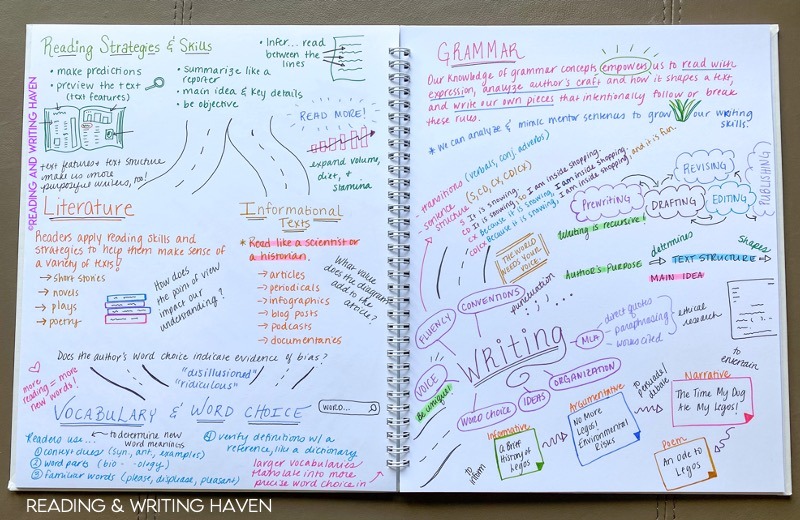 Reading Strategies & Skills
• make predictions
• preview the text
(text features)
• Summarize like a
reporter
• main idea & key details
• be objective
• Infer... read
between the
lines
READ MORE!
expand volume,
diet, +
stamina
text features + text structure
make us more
purposeful writers, too!
©READING AND WRITING HAVEN
Literature
Readers apply reading skills and
strategies to help them make sense of
a variety of texts!
→ short stories
→ novels
→ plays
→ poetry
How does
the point of view
impact our
understanding?
Informational
Texts
* Read like a scientist or
a historian.
→ articles
→ periodicals
→ infographics
→ blog posts
→ podcasts
→ documentaries
What value
does the diagram
add to the
article?
Does the author's word choice indicate evidence of bias?
"disillusioned"
"ridiculous"
more
reading = more
new words!
VOCABULARY & WORD CHOICE
WORD...
Readers use...
to determine new
word meanings
① context clues (syn, ant, examples)
② word parts (bio · · ology)
③ familiar words (please, displease, pleasant)
④ verify definitions w/ a
reference, like a dictionary
larger vocabularies
translate into more
precise word choice in
GRAMMAR
Our knowledge of grammar concepts empowers us to read with
expression, analyze author's craft and how it shapes a text,
and write our own pieces that intentionally follow or break
these rules.
* We can analyze & mimic mentor sentences to grow our writing
skills.
- transitions (verbals, conj. adverbs)
- sentence
structure (S, CD, CX, CD/CX)
S It is snowing.
CD It is snowing, so I am inside shopping.
CX Because it is snowing, I am inside shopping.
CDCX Because it is snowing, I am inside shopping, and it is fun.
Prewriting
DRAFTING
REVISING
EDITING
PUBLISHING
Writing is recursive!
THE WORLD
NEEDS YOUR
VOICE
Author's Purpose
determines
TEXT STRUCTURE
MAIN IDEA
shapes
punctuation
FLUENCY
CONVENTIONS
Writing
VOICE
Be unique!
WORD CHOICE
IDEAS
ORGANIZATION
MLA
direct quotes
paraphrasing
works cited
ethical
research
to inform
Informative
A Brief
History of
Legos
Argumentative
No More
Legos!
Environmental
Risks
to
persuade/
debate
Narrative
The Time My Dog
Ate My Legos!
to
entertain
Poem
An Ode to
Legos
READING & WRITING HAVEN